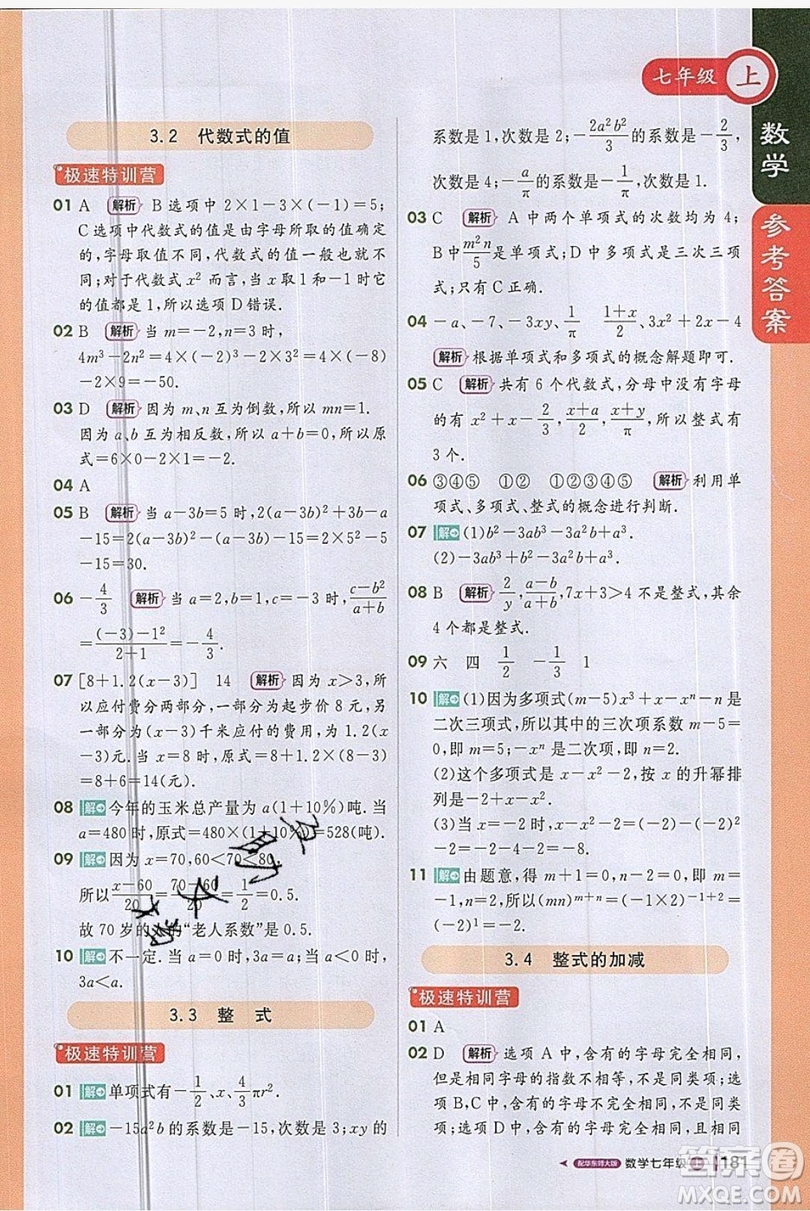 七年级 上
数学
参考答案
3.2 代数式的值
极速特训营
01 A 解析 B 选项中 2×1-3×(-1)=5;
C选项中代数式的值是由字母所取的值确定
的,字母取值不同,代数式的值一般不同;
对于代数式 x² 而言,当 x 取 1 和 -1 时,它
的值都是 1,所以选项 D 错误.
02 B 解析 当 m=-2,n=3 时,
4m³-2n²=4×(-2)³-2×3²=4×(-8)
-2×9=-50.
03 D 解析 因为 m、n 互为倒数,所以 mn=1.
因为 a、b 互为相反数,所以 a+b=0,所以原
式=6×0×1-2=-2.
04 A
05 B 解析 当 a-3b=5时,2(a-3b)²+3b-a
-15=2(a-3b)²-(a-3b)-15=2×5²-5
-15=30.
06 -4/3 解析 当 a=2,b=1,c=-3 时,(c-b²)/(a+b)
=((-3)-1²)/(2+1)=-4/3.
07 [8+1.2(x-3)] 14 解析 因为 x>3,所
以应付费分两部分,一部分为起步价 8 元,另
一部分为(x-3)千米应付的费用,为 1.2(x-
3)元. 当 x=8 时,原式=8+1.2×(8-3)
=8+6=14(元).
08 解 今年的玉米总产量为 a(1+10%)吨. 当
a=480 时,原式=480×(1+10%)=528(吨).
09 解 因为 x=70,60<70<80.
所以(x-60)/20=(70-60)/20=1/2=0.5.
故 70 岁的人的“老人系数”是 0.5.
10 解 不一定. 当 a=0 时,3a=a;当 a<0 时,
3a<a.
3.3 整 式
极速特训营
01 解 单项式有-1/2、x、4/3πr².
02 解 -15a²b 的系数是-15,次数是 3;xy 的
系数是 1,次数是 2;-2a²b²/3的系数是-2/3,
次数是 4;-a/π的系数是-1/π,次数是 1.
03 C 解析 A 中两个单项式的次数均为 4;
B中m²n/5是单项式;D中多项式是三次三项
式;只有 C 正确.
04 -a、-7、-3xy、1/π (1+x)/2、3x²+2x-4
解析 根据单项式和多项式的概念解题即可.
05 C 解析 共有 6 个代数式,分母中没有字母
的有 x²+x-2/3,(x+a)/2,(x+y)/π,所以整式有
3 个.
06 ③④⑤ ①② ①②③④⑤ 解析 利用单
项式、多项式、整式的概念进行判断.
07 解 (1)b²-3ab³-3a²b+a³.
(2)-3ab³+b²-3a²b+a³.
08 B 解析 2/y,(a-b)/(a+b),7x+3>4 不是整式,其余
4 个都是整式.
09 六 四 1/2 -1/3 1
10 解 (1)因为多项式(m-5)x³+x-xⁿ 是
二次三项式,所以其中的三次项系数 m-5=
0,即 m=5;-xⁿ 是二次项,即 n=2.
(2)这个多项式是 x-x²-2,按 x 的升幂排
列是-2+x-x².
(3)当 x=-2 时,x-x²-2=-2-(-2)²
-2=-2-4-2=-8.
11 解 由题意,得 m+1=0,2-n=0,即 m=
-1,n=2,所以(mn)^(m+n)=(-1×2)^(-1+2)=
(-2)¹=-2.
3.4 整式的加减
极速特训营
01 A
02 D 解析 选项 A 中,含有的字母完全相同,
但是相同字母的指数不完全相同,不是同类项;
选项 B、C 中,含有的字母不完全相同,不是同
类项;选项 D 中,含有的字母完全相同,且相同
配华东师大版 数学七年级 上 181
答案圈
MXQE.COM